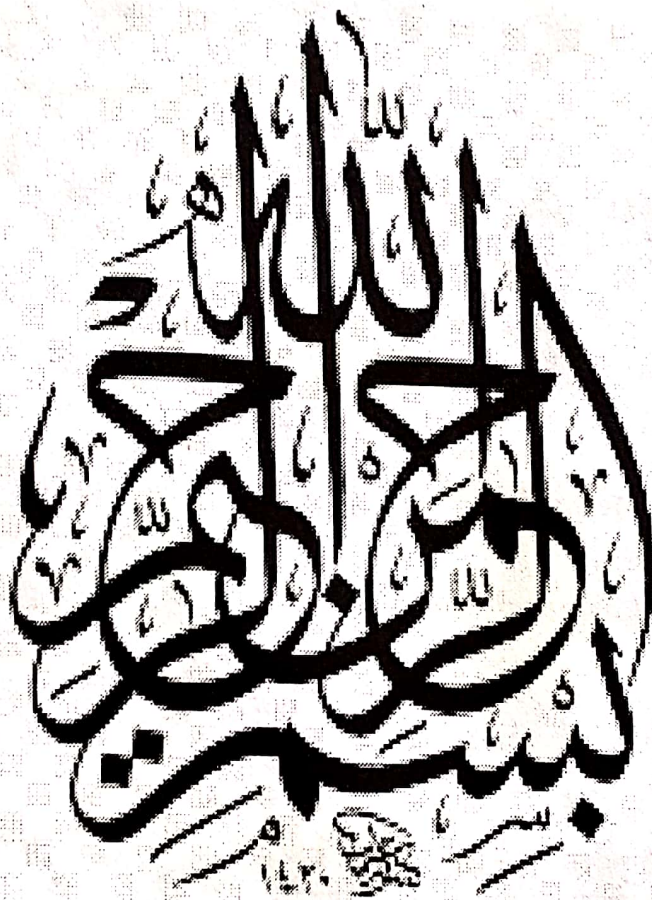 بسم
الله
الرحمن الرحيم
١٤٣٠